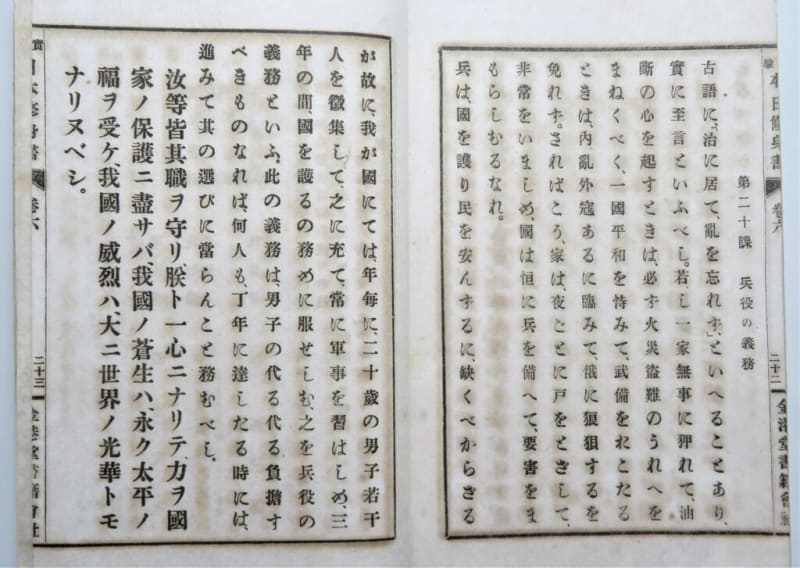 本日修身書
卷六
二十二
金港堂書籍會社
第二十課　兵役の義務
古語に、「治に居て、亂を忘れず」といへることあり、
實に至言といふべし。若し一家無事に狎れて、油
斷の心を起すときは、必ず火災盜難のうれへを
まねくべく、一國平和を恃みて、武備をおこたる
ときは、內亂外寇あるに臨みて、俄に狼狽するを
免れず。さればこう、家は、夜ごとに戸をとざして、
非常をいましめ、國は恒に兵を備へて、要害をま
もらしむるなれ。
兵は、國を護り民を安んずるに、缺くべからざる
が故に、我が國にては、年每に、二十歲の男子若干
人を徵集して、之に充て、常に軍事を習はしめ、三
年の間、國を護るの務めに服せしむ、之を兵役の
義務といふ、此の義務は、男子の代る代る負擔す
べきものなれば、何人も、丁年に達したる時には、
進みて其の選びに當らんことを務むべし。
汝等皆其職ヲ守リ、朕ト一心ニナリテ、力ヲ國
家ノ保護ニ盡サバ、我國ノ蒼生ハ、永ク太平ノ
福ヲ受ケ、我國ノ威烈ハ、大ニ世界ノ光華トモ
ナリヌベシ。
卷六
二十三
金港堂書籍會社